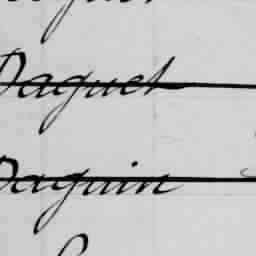 Daguet
Daguin